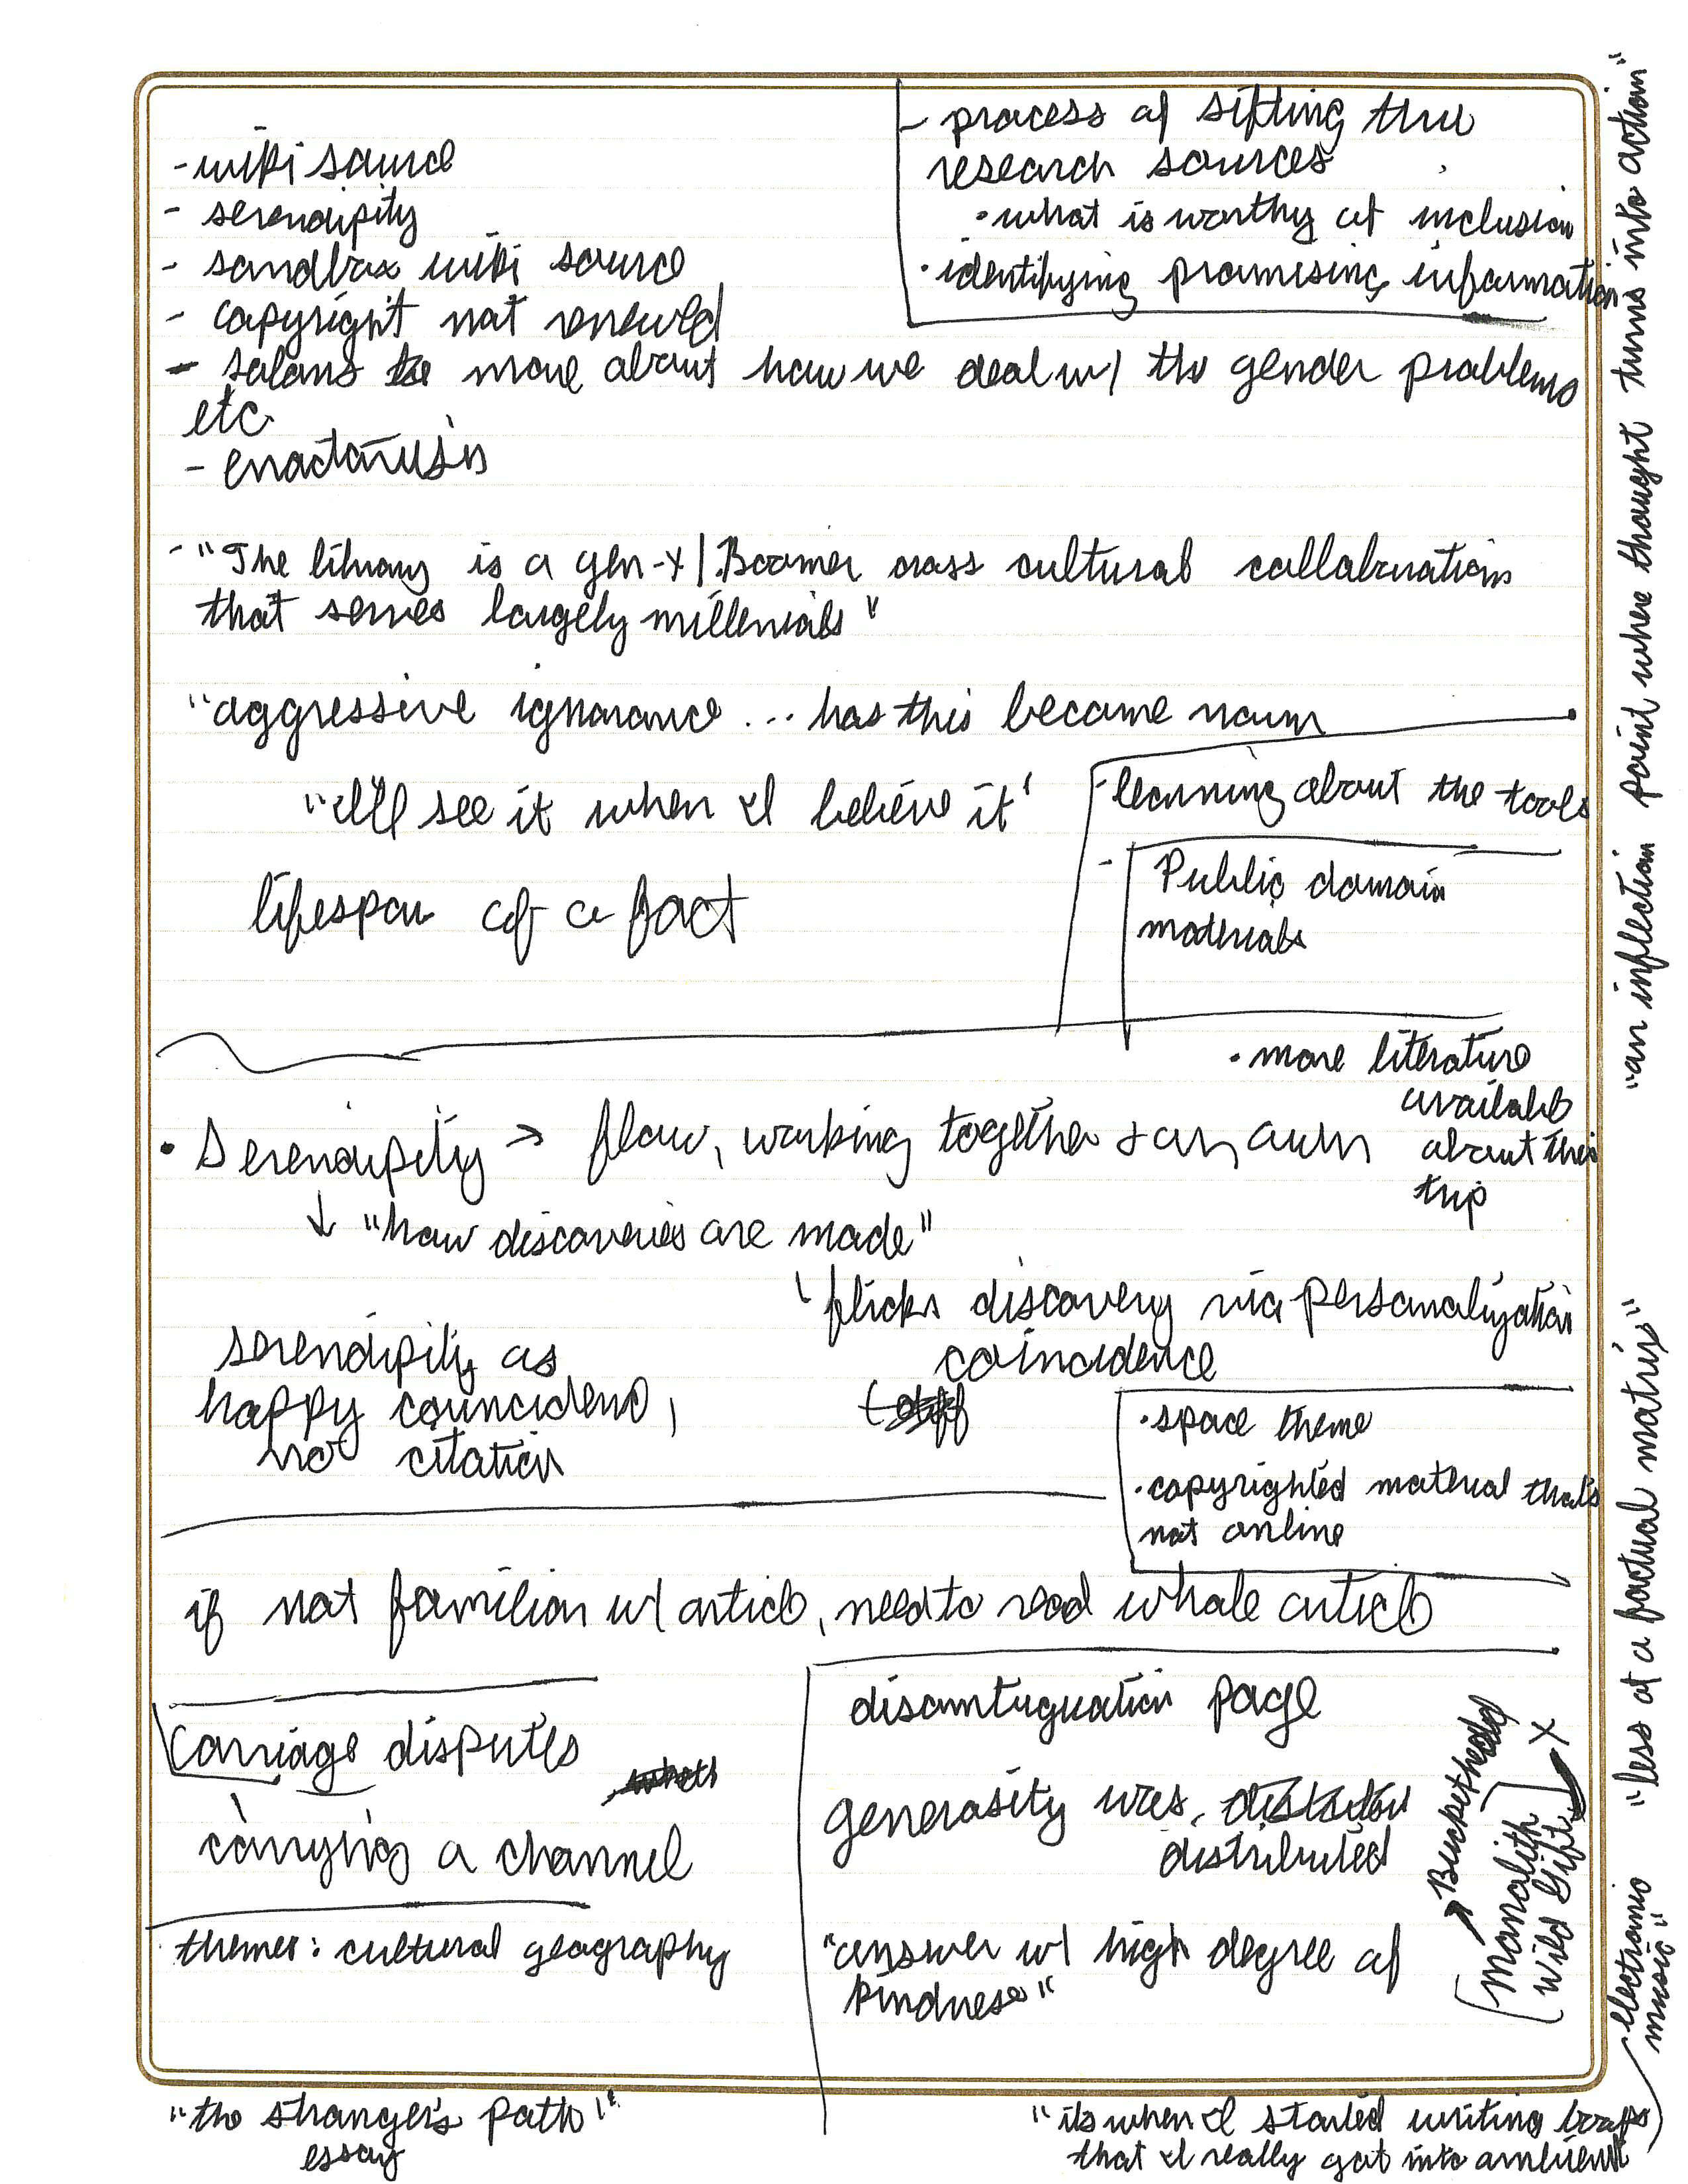 - wiki source
- serendipity
- sandbox wiki source
- copyright not renewed
- salons more about how we deal w/ the gender problems
etc
- process of sifting thru
research sources
• what is worthy of inclusion
• identifying promising information
- "The library is a gen-x | Boomer cross cultural collaboration
that serves largely millenials"
"aggressive ignorance ... has this become norm
"I'll see it when I believe it"
lifespan of a fact
- learning about the tools
- Public domain
materials
• more literature
available
about their
trip
• Serendipity → flow, working together + on own
↓ "how discoveries are made"
flicks discovery via personalization
coincidence
serendipity as
happy coincidence,
no citation
• space theme
• copyrighted material that's
not online
if not familiar w/ article, need to read whole article
Carriage disputes
carrying a channel
themes: cultural geography
disambiguation page
generosity was
distributed
"answer w/ high degree of
kindness"
Buckethead
monolith
wild Gift
X
"an inflection point where thought turns into action"
"less of a factual matrix"
electronic
music"
"the stranger's path"
essay
"its when I started writing
that I really got into ambient